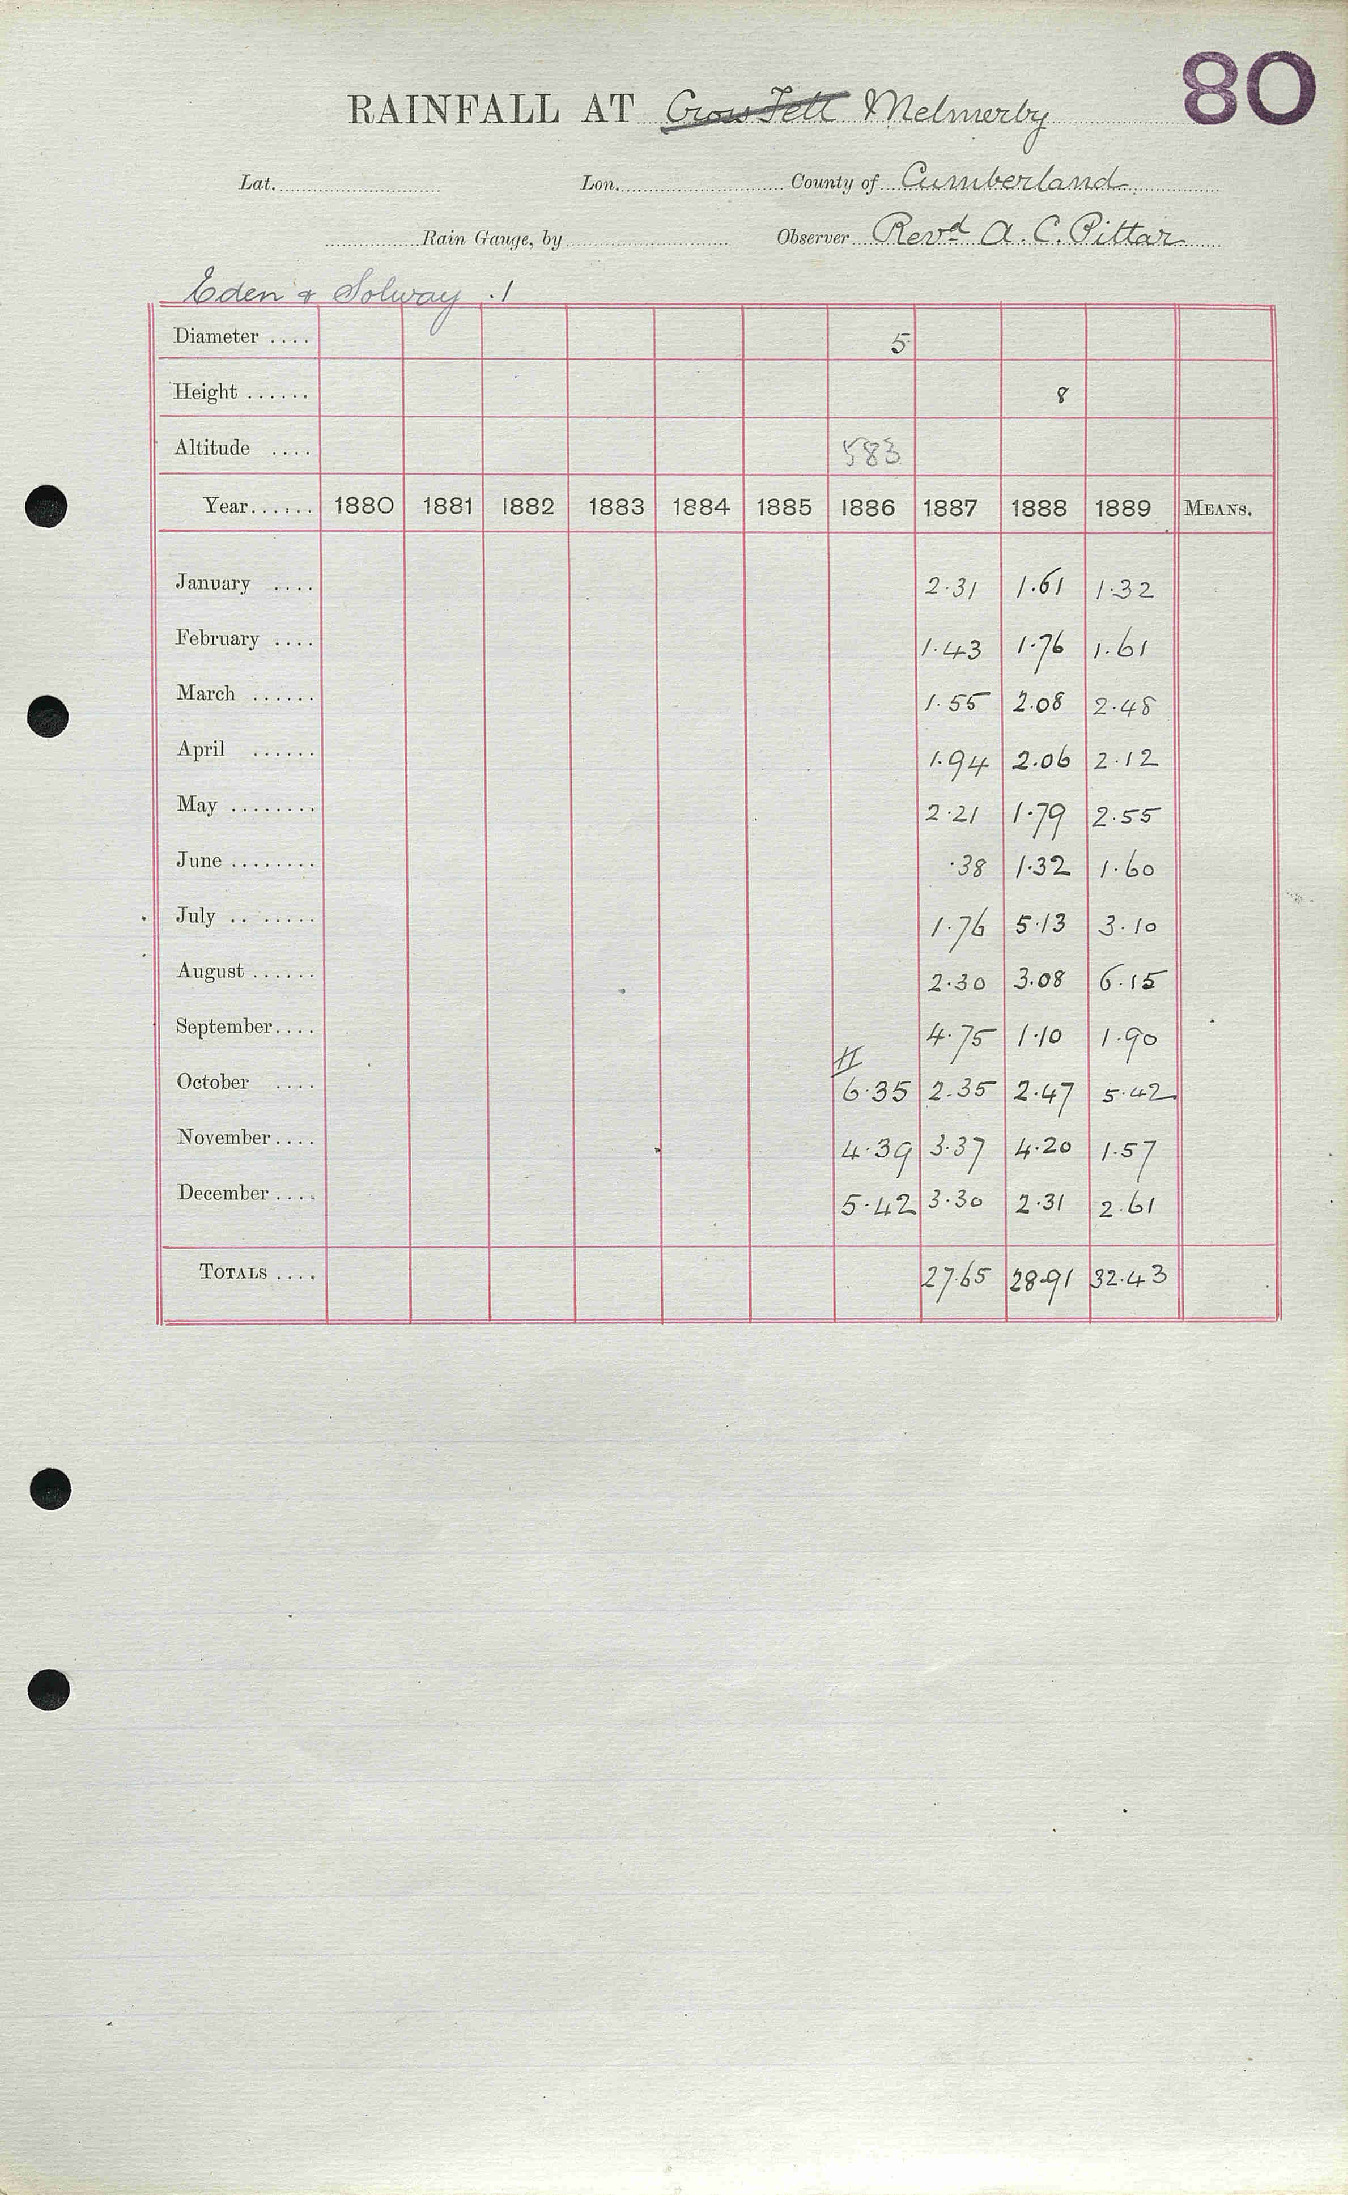 80
RAINFALL AT Cross Fell Melmerby
Lat. Lon. County of Cumberland
Rain Gauge, by Observer Revd A. C. Pittar
Eden & Solway .1
Diameter .... 5
Height ...... 8
Altitude .... 583
Year...... 1880 1881 1882 1883 1884 1885 1886 1887 1888 1889 MEANS.
January .... 2.31 1.61 1.32
February .... 1.43 1.76 1.61
March ...... 1.55 2.08 2.48
April ...... 1.94 2.06 2.12
May ........ 2.21 1.79 2.55
June ........ .38 1.32 1.60
July ........ 1.76 5.13 3.10
August ...... 2.30 3.08 6.15
September.... 4.75 1.10 1.90
October .... 6.35 2.35 2.47 5.42
November.... 4.39 3.37 4.20 1.57
December .... 5.42 3.30 2.31 2.61
TOTALS .... 27.65 28.91 32.43